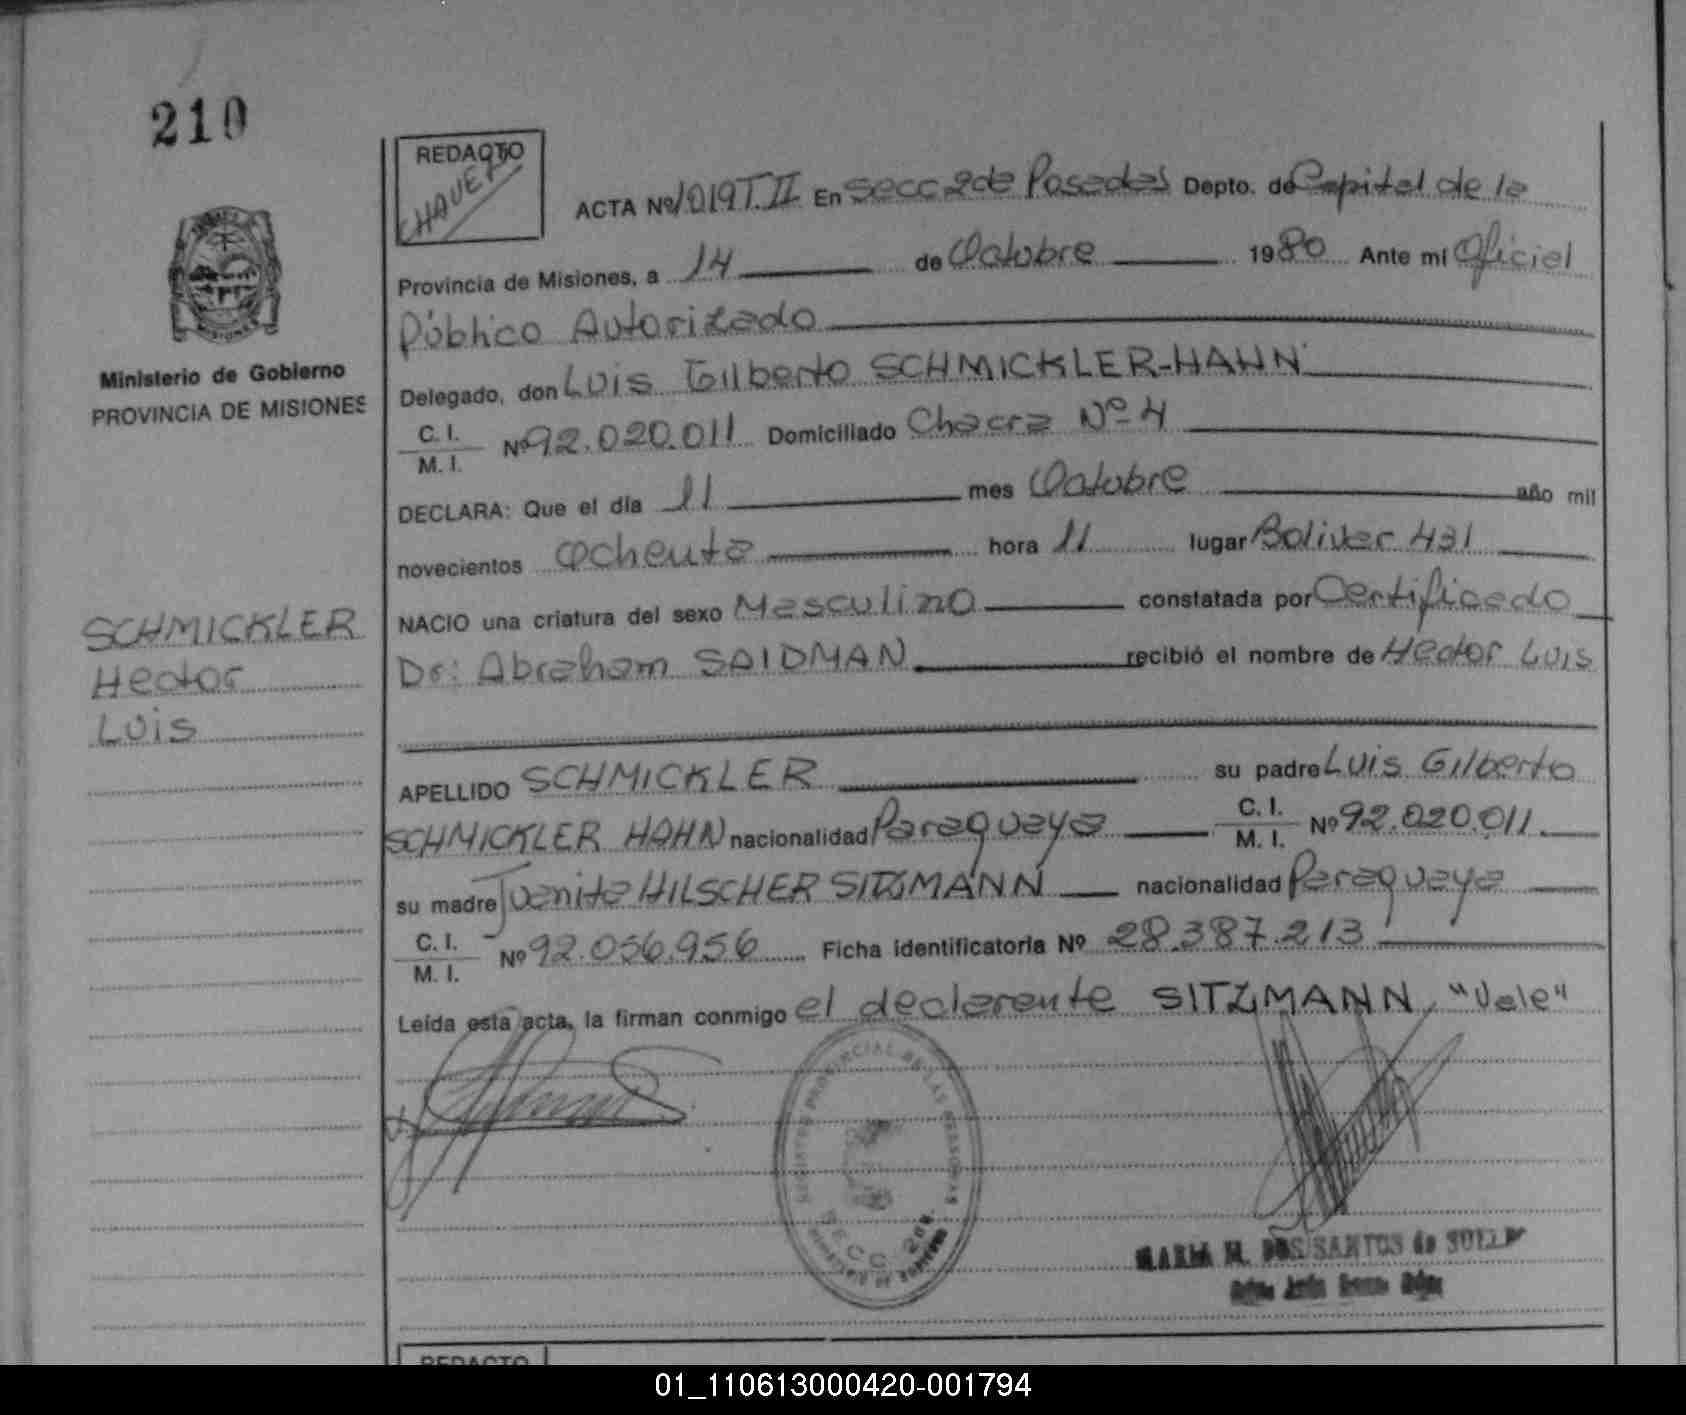 210
REDACTO
CHAVEZ
ACTA Nº 1019 T. II En Secc 2da Posadas Depto. de Capital de la
Provincia de Misiones, a 14 de Octubre 1980 Ante mi Oficial
Público Autorizado
Delegado, don Luis Gilberto SCHMICKLER-HAHN
C. I. / M. I. Nº 92.020.011 Domiciliado Chacra Nº 4
DECLARA: Que el día 11 mes Octubre año mil
novecientos ochenta hora 11 lugar Bolivar 431
NACIO una criatura del sexo Masculino constatada por Certificado
Dr: Abraham SAIDMAN recibió el nombre de Hector Luis
APELLIDO SCHMICKLER su padre Luis Gilberto
SCHMICKLER HAHN nacionalidad Paraguaya C. I. / M. I. Nº 92.020.011
su madre Juanita HILSCHER SITZMANN nacionalidad Paraguaya
C. I. / M. I. Nº 92.056.956 Ficha Identificatoria Nº 28.387.213
Leída esta acta, la firman conmigo el declarante SITZMANN, "Vale"
Ministerio de Gobierno
PROVINCIA DE MISIONES
SCHMICKLER
Hector
Luis
PROVINCIAL DE LAS PERSONAS
SECC. 2da.
MARIA M. DOS SANTOS de
REDACTO
01_110613000420-001794